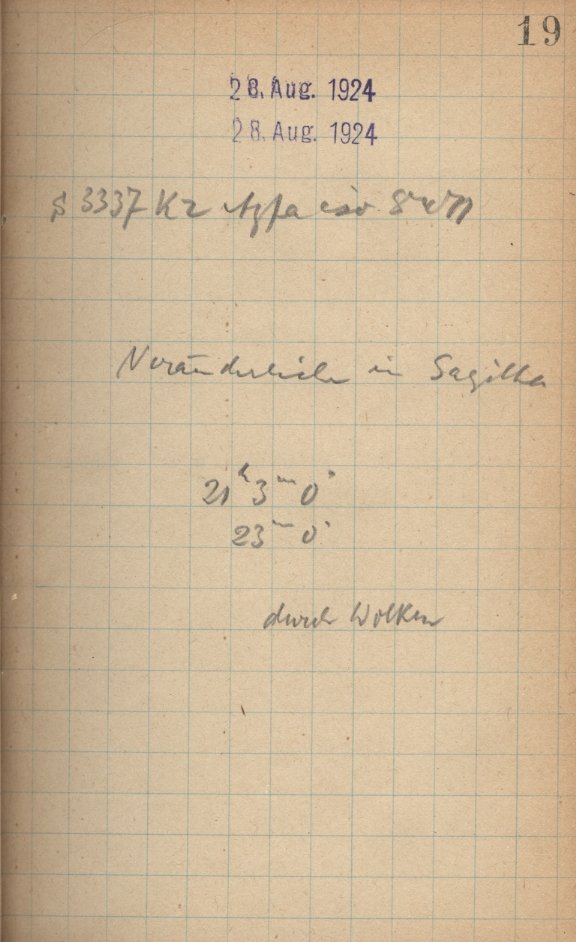 19
28. Aug. 1924
28. Aug. 1924
S 3337 K2 Agfa iso
Veränderliche in Sagitta
21ʰ 3ᵐ 0ˢ
23ᵐ 0ˢ
durch Wolken